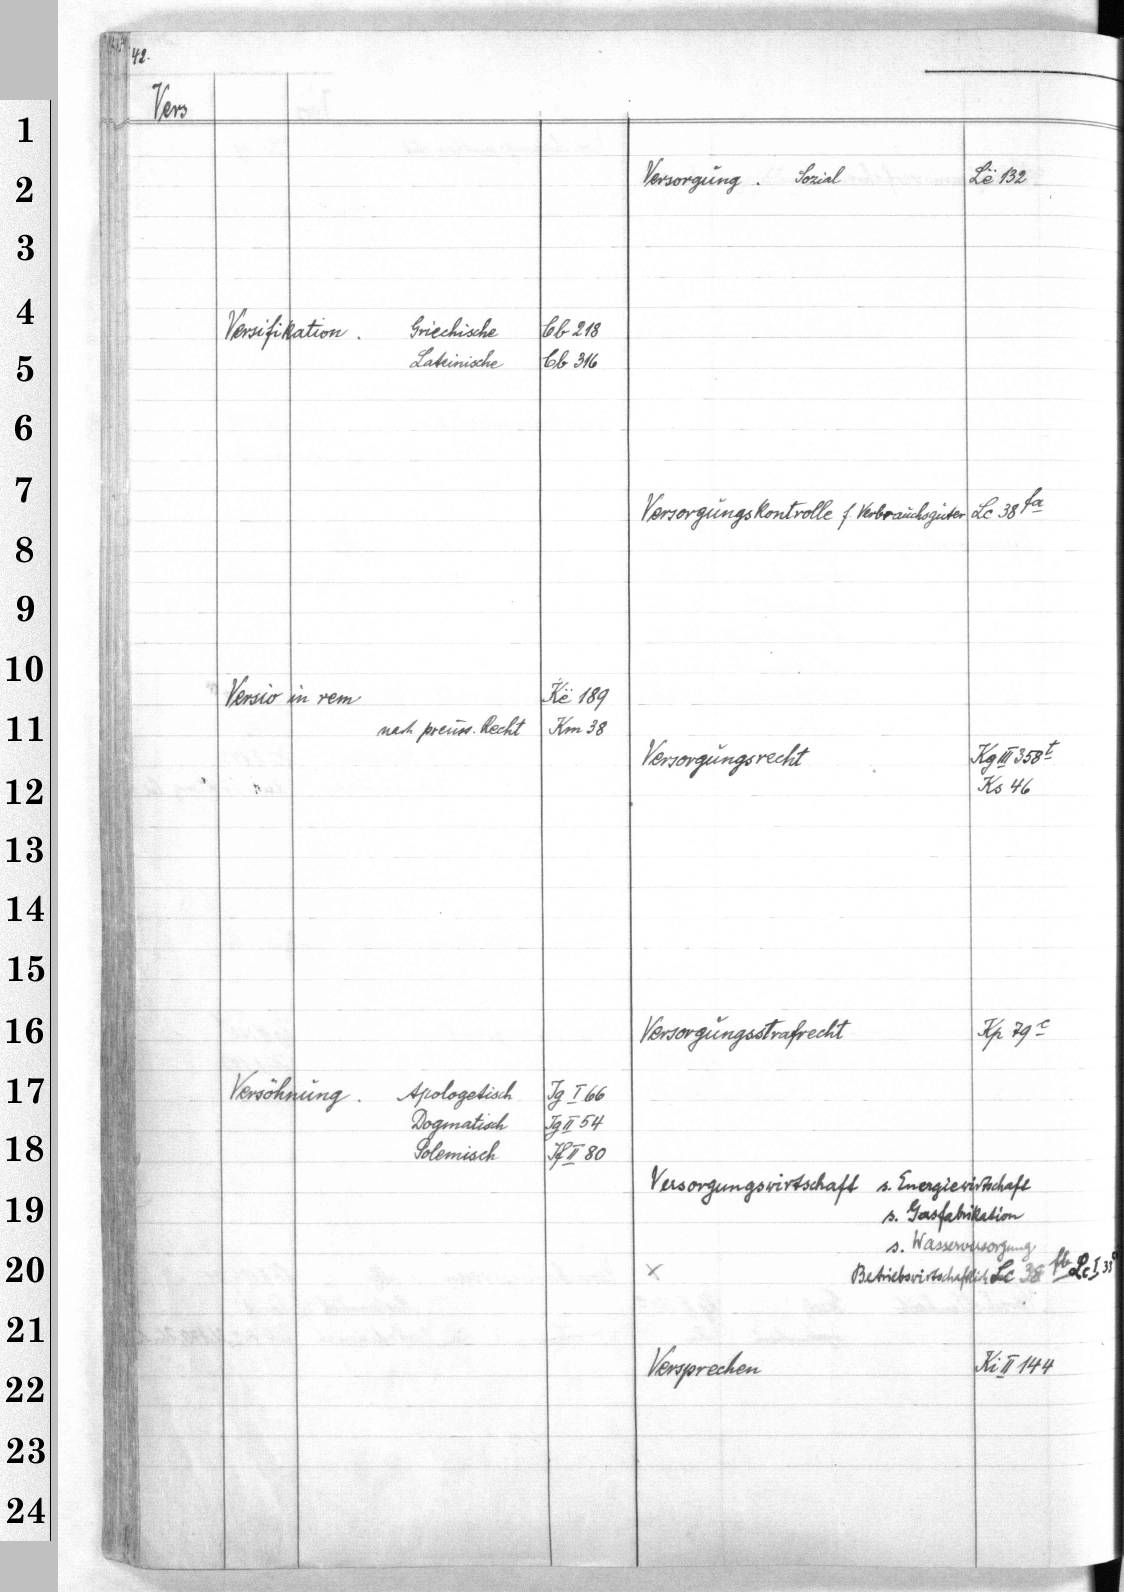 42.
Vers
1
2
3
4
5
6
7
8
9
10
11
12
13
14
15
16
17
18
19
20
21
22
23
24
Versifikation . Griechische Cb 218
Lateinische Cb 316
Versio in rem Kë 189
nach preuss. Recht Km 38
Versöhnung . Apologetisch Jg I 66
Dogmatisch Jg II 54
Polemisch Jf II 80
Versorgung . Sozial Lë 132
Versorgungskontrolle f. Verbrauchsgüter Lc 38 fa
Versorgungsrecht Kg III 358 t
Ks 46
Versorgungsstrafrecht Kp 79 c
Versorgungswirtschaft s. Energiewirtschaft
s. Gasfabrikation
s. Wasserversorgung
x Betriebswirtschaftlich Lc 38 fb Lc I 33
Versprechen Ki II 144